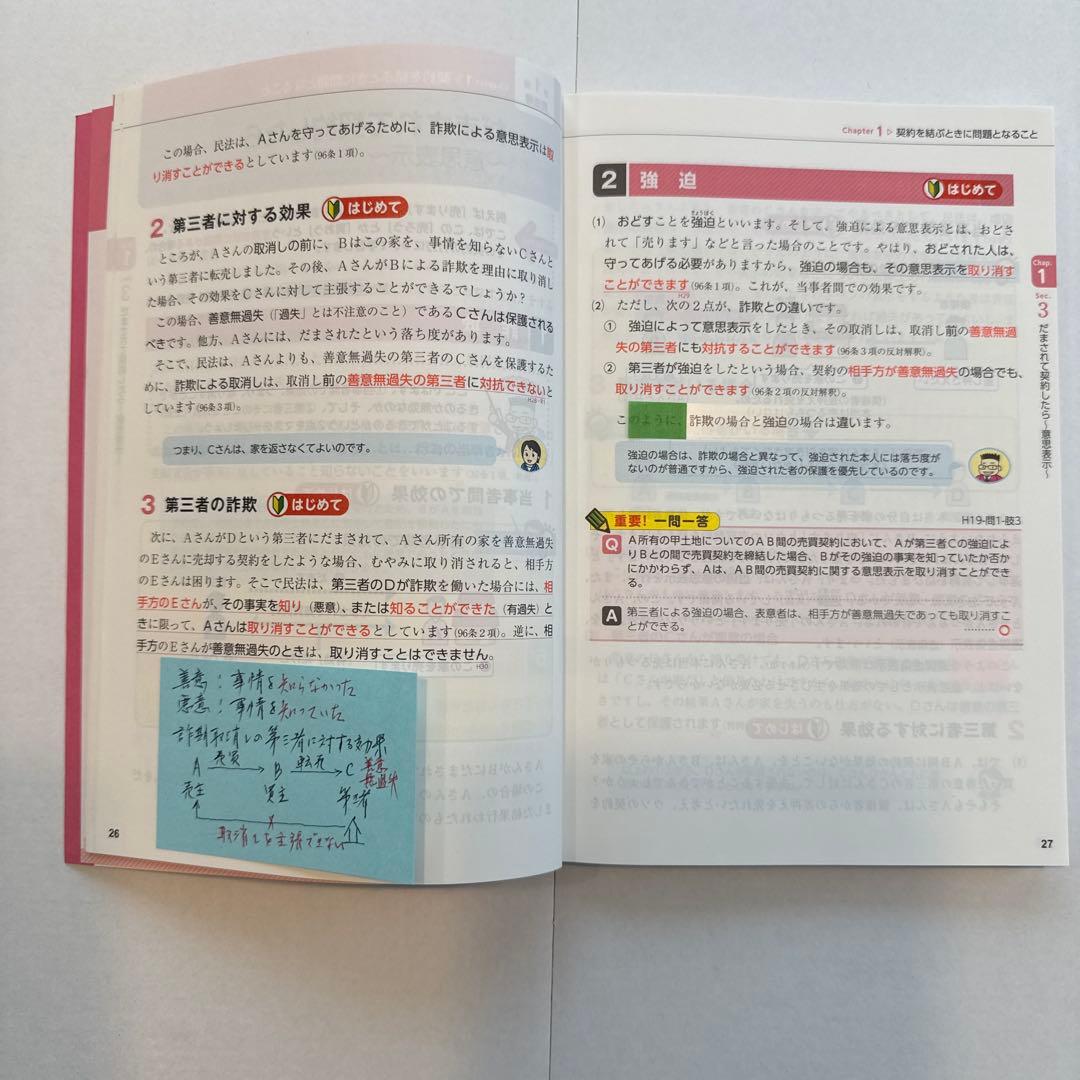 この場合、民法は、Aさんを守ってあげるために、詐欺による意思表示は取
り消すことができるとしています(96条1項)。
2 第三者に対する効果 はじめて
ところが、Aさんの取消しの前に、Bはこの家を、事情を知らないCさんと
いう第三者に転売しました。その後、AさんがBによる詐欺を理由に取り消し
た場合、その効果をCさんに対して主張することができるでしょうか?
この場合、善意無過失(「過失」とは不注意のこと)であるCさんは保護される
べきです。他方、Aさんには、だまされたという落ち度があります。
そこで、民法は、Aさんよりも、善意無過失の第三者のCさんを保護するた
めに、詐欺による取消しは、取消し前の善意無過失の第三者に対抗できないと
しています(96条3項)。
H28・R1
つまり、Cさんは、家を返さなくてよいのです。
3 第三者の詐欺 はじめて
次に、AさんがDという第三者にだまされて、Aさん所有の家を善意無過失
のEさんに売却する契約をしたような場合、むやみに取り消されると、相手方
のEさんは困ります。そこで民法は、第三者のDが詐欺を働いた場合には、相
手方のEさんが、その事実を知り(悪意)、または知ることができた(有過失)と
きに限って、Aさんは取り消すことができるとしています(96条2項)。逆に、相
手方のEさんが善意無過失のときは、取り消すことはできません。
H30
善意:事情を知らなかった
悪意:事情を知っていた
詐欺取消しの第三者に対する効果
売買 転売 善意
A B C 無過失
売主 買主 第三者
取消しを主張できない
26
Chapter 1 ▷ 契約を結ぶときに問題となること
2 強迫 はじめて
きょうはく
(1) おどすことを強迫といいます。そして、強迫による意思表示とは、おどさ
れて「売ります」などと言った場合のことです。やはり、おどされた人は、
守ってあげる必要がありますから、強迫の場合も、その意思表示を取り消す
ことができます(96条1項)。これが、当事者間での効果です。
H29
(2) ただし、次の2点が、詐欺との違いです。
① 強迫によって意思表示をしたとき、その取消しは、取消し前の善意無過
失の第三者にも対抗することができます(96条3項の反対解釈)。
② 第三者が強迫をしたという場合、契約の相手方が善意無過失の場合でも、
取り消すことができます(96条2項の反対解釈)。
このように、詐欺の場合と強迫の場合は違います。
強迫の場合は、詐欺の場合と異なって、強迫された本人には落ち度が
ないのが普通ですから、強迫された者の保護を優先しているのです。
重要! 一問一答 H19-問1-肢3
Q A所有の甲土地についてのAB間の売買契約において、Aが第三者Cの強迫によ
りBとの間で売買契約を締結した場合、Bがその強迫の事実を知っていたか否か
にかかわらず、Aは、AB間の売買契約に関する意思表示を取り消すことができ
る。
A 第三者による強迫の場合、表意者は、相手方が善意無過失であっても取り消すこ
とができる。 ………○
Chap.
1
Sec.
3
だまされて契約したら〜意思表示〜
27